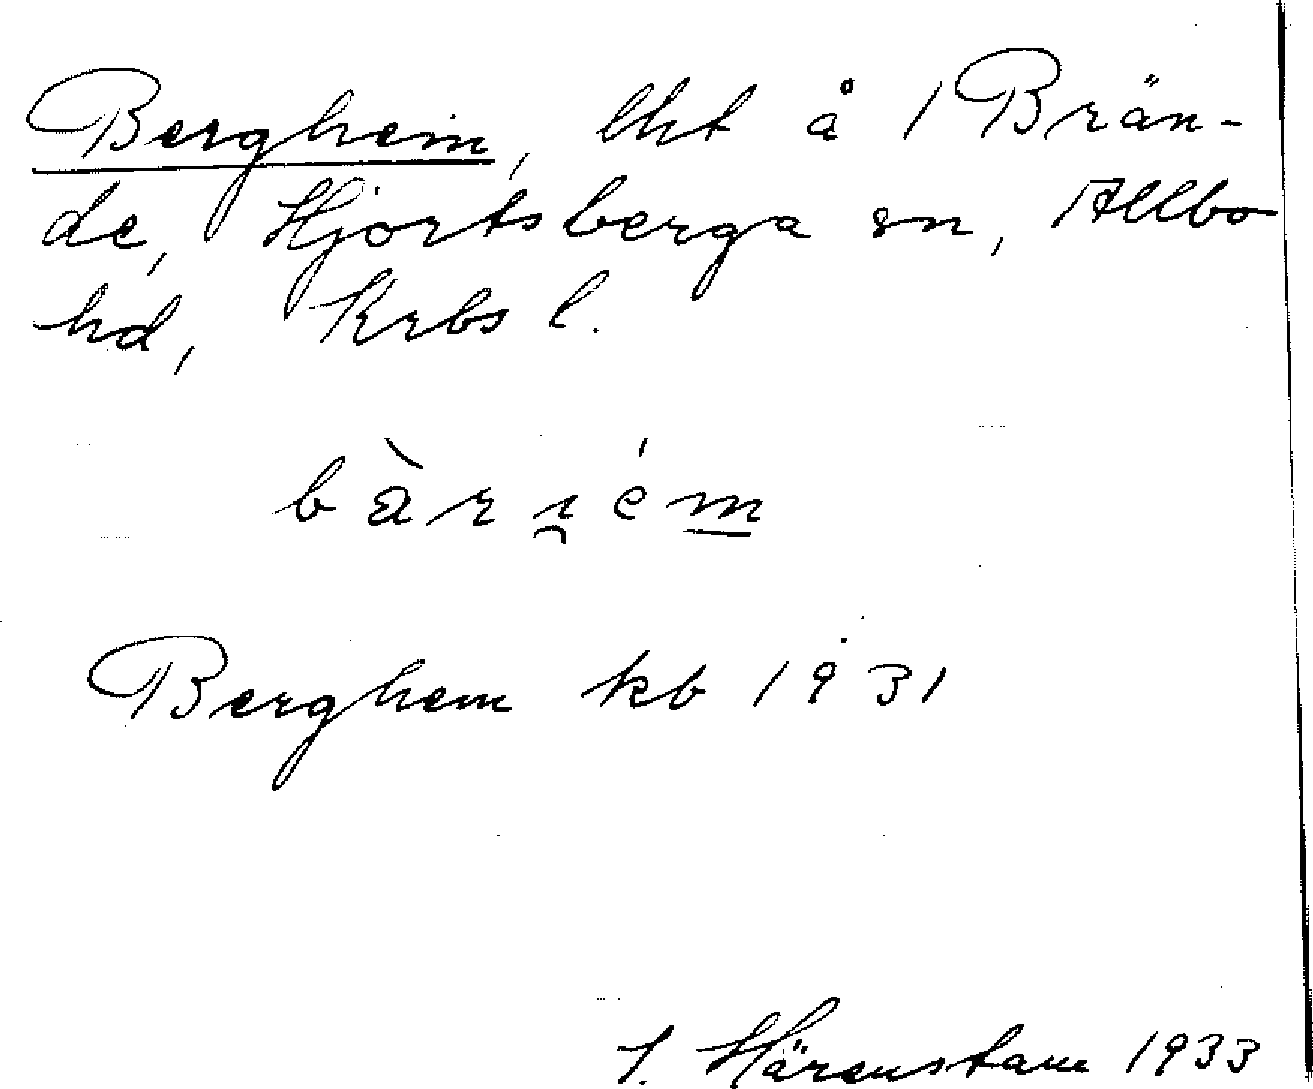 Bergheim, lht å Brän-
de, Hjortsberga sn, Allbo
hd, Krbs l.
bàrı̯ém
Berghem kb 1931
I. Härenstam 1933